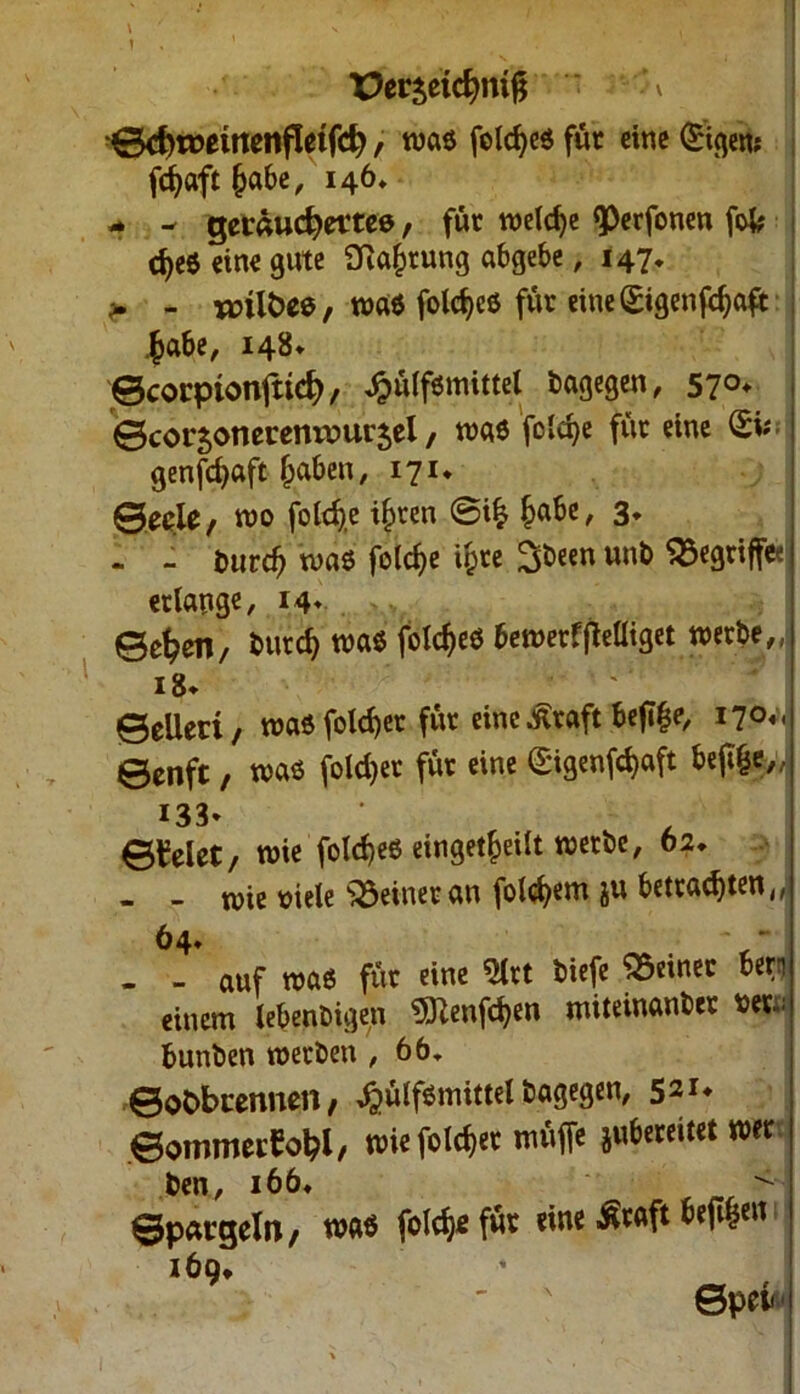 Verzeichniß
Schweinenfleisch, was solches für eine Eigen-
schaft habe, 146.
- - geräuchertes, für welche Personen sol-
ches eine gute Nahrung abgebe, 147.
- - wildes, was solches für eine Eigenschaft
habe, 148.
Scorpionstich, Hülfsmittel dagegen, 570.
Scorzonerenwurzel, was solche für eine Ei-
genschaft haben, 171.
Seele, wo solche ihren Sitz habe, 3.
- - durch was solche ihre Ideen und Begriffe
erlange, 14.
Sehen, durch was solches bewerkstelliget werde,
18.
Selleri, was solcher für eine Kraft besitze, 170.
Senft, was solcher für eine Eigenschaft besitze,
133.
Skelet, wie solches eingetheilt werde, 62.
- - wie viele Beiner an solchem zu betrachten,
64.
- - auf was für eine Art diese Beiner bey
einem lebendigen Menschen miteinander ver-
bunden werden, 66.
Sodbrennen, Hülfsmittel dagegen, 521.
Sommerkohl, wie solcher müsse zubereitet wer-
den, 166.
Spargeln, was solche für eine Kraft besitzen
169.
Spei-